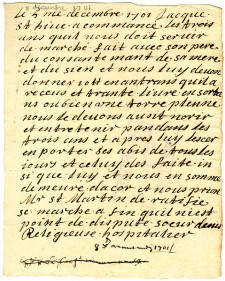 8 décembre 1701
le 8 me décembre 1701 Jacque
st hire a commancé les trois
ans quil nous doit seruir
de marché fait auec son pere
du consantemant de sa mere
et du sien et nous luy deuon
donner en entrans quil a
receus et trante liure en sortans
ou bien une torre plenne
nous le deuons ausit norir
et entretenir pandans les
trois ans et apres luy lescer
en porter ses abis de tras les
jours et celuy des faite in
si que luy et nous en somme
de meure dacor et nous prion
Mr st Martin de ratifié
se marché a fin quil niest
point de dispute soeur denis
Religieuse hospitalier